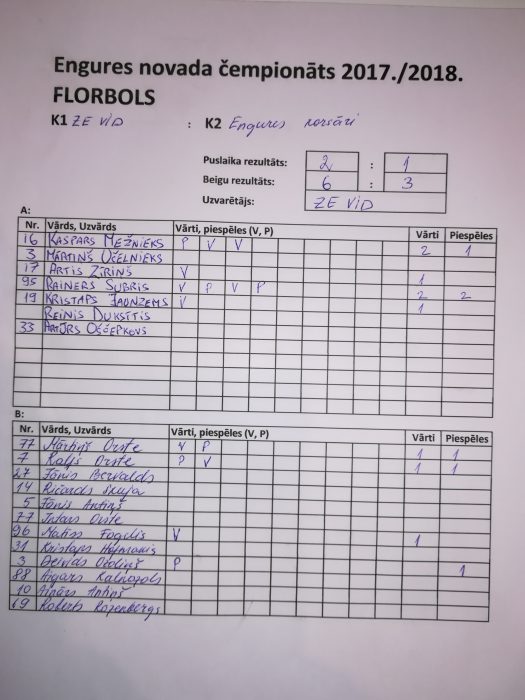 Engures novada čempionāts 2017./2018.
FLORBOLS
K1 ZE VID : K2 Engures
Puslaika rezultāts: 2 : 1
Beigu rezultāts: 6 : 3
Uzvarētājs: ZE VID
A:
Nr. Vārds, Uzvārds Vārti, piespēles (V, P) Vārti Piespēles
16 KASPARS MEŽNIEKS P V V 2 1
3 MĀRTIŅŠ OČELNIEKS
17 ARTIS ZĪRIŅŠ V 1
95 RAINERS SUBRIS V P V P 2 2
19 KRISTAPS JAUNZEMS V 1
REINIS DUKSĪTIS
33 ARTŪRS OŠČEPKOVS
B:
Nr. Vārds, Uzvārds Vārti, piespēles (V, P) Vārti Piespēles
77 Mārtiņš Orste V P 1 1
7 Ralfs Orste P V 1 1
27 Jānis Bērvalds
14 Ričards Skuja
5 Jānis Antiņš
77 Intars Orste
96 Matīss Fogelis V 1
31 Kristaps
3 Deivids Ozoliņš P 1
88 Aigars Kalnozols
10 Ainārs Antiņš
69 Roberts Rozenbergs